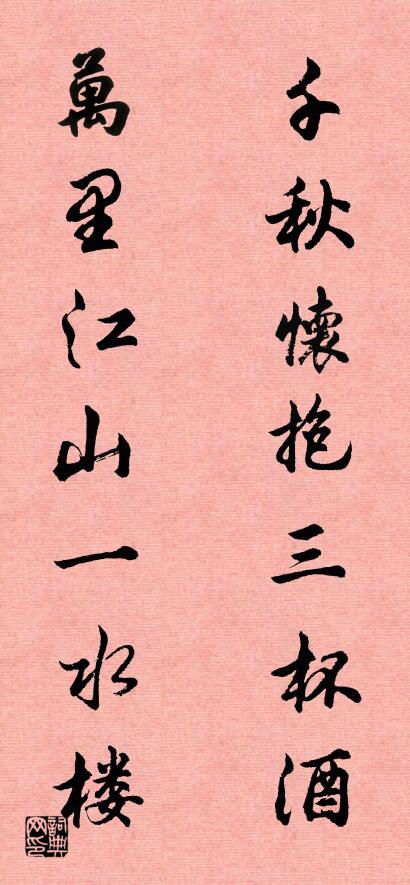 千秋懷抱三杯酒
萬里江山一水楼
詞典网印